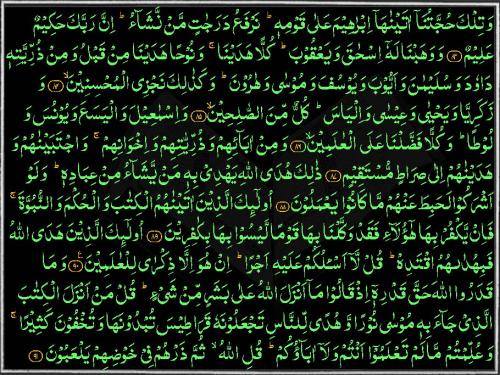 وَتِلْكَ حُجَّتُنَاۤ اٰتَيْنٰهَاۤ اِبْرٰهِيْمَ عَلٰى قَوْمِهٖ ؕ نَرْفَعُ دَرَجٰتٍ مَّنْ نَّشَآءُ ؕ اِنَّ رَبَّكَ حَكِيْمٌ
عَلِيْمٌ ﴿۸۳﴾ وَوَهَبْنَا لَهٗۤ اِسْحٰقَ وَيَعْقُوْبَ ؕ كُلًّا هَدَيْنَا ۚ وَنُوْحًا هَدَيْنَا مِنْ قَبْلُ وَمِنْ ذُرِّيَّتِهٖ
دَاوٗدَ وَسُلَيْمٰنَ وَاَيُّوْبَ وَيُوْسُفَ وَمُوْسٰى وَهٰرُوْنَ ؕ وَكَذٰلِكَ نَجْزِى الْمُحْسِنِيْنَ ۙ﴿۸۴﴾ وَ
زَكَرِيَّا وَيَحْيٰى وَعِيْسٰى وَاِلْيَاسَ ؕ كُلٌّ مِّنَ الصّٰلِحِيْنَ ۙ﴿۸۵﴾ وَاِسْمٰعِيْلَ وَالْيَسَعَ وَيُوْنُسَ وَ
لُوْطًا ؕ وَكُلًّا فَضَّلْنَا عَلَى الْعٰلَمِيْنَ ۙ﴿۸۶﴾ وَمِنْ اٰبَآئِهِمْ وَذُرِّيّٰتِهِمْ وَاِخْوَانِهِمْ ۚ وَاجْتَبَيْنٰهُمْ وَ
هَدَيْنٰهُمْ اِلٰى صِرَاطٍ مُّسْتَقِيْمٍ ﴿۸۷﴾ ذٰلِكَ هُدَى اللّٰهِ يَهْدِىْ بِهٖ مَنْ يَّشَآءُ مِنْ عِبَادِهٖ ؕ وَلَوْ
اَشْرَكُوْا لَحَبِطَ عَنْهُمْ مَّا كَانُوْا يَعْمَلُوْنَ ﴿۸۸﴾ اُولٰٓئِكَ الَّذِيْنَ اٰتَيْنٰهُمُ الْكِتٰبَ وَالْحُكْمَ وَالنُّبُوَّةَ ۚ
فَاِنْ يَّكْفُرْ بِهَا هٰٓؤُلَآءِ فَقَدْ وَكَّلْنَا بِهَا قَوْمًا لَّيْسُوْا بِهَا بِكٰفِرِيْنَ ﴿۸۹﴾ اُولٰٓئِكَ الَّذِيْنَ هَدَى اللّٰهُ
فَبِهُدٰٮهُمُ اقْتَدِهْ ؕ قُلْ لَّاۤ اَسْئَلُكُمْ عَلَيْهِ اَجْرًا ؕ اِنْ هُوَ اِلَّا ذِكْرٰى لِلْعٰلَمِيْنَ ﴿۹۰﴾ وَمَا
قَدَرُوا اللّٰهَ حَقَّ قَدْرِهٖۤ اِذْ قَالُوْا مَاۤ اَنْزَلَ اللّٰهُ عَلٰى بَشَرٍ مِّنْ شَىْءٍ ؕ قُلْ مَنْ اَنْزَلَ الْكِتٰبَ
الَّذِىْ جَآءَ بِهٖ مُوْسٰى نُوْرًا وَّهُدًى لِّلنَّاسِ تَجْعَلُوْنَهٗ قَرَاطِيْسَ تُبْدُوْنَهَا وَتُخْفُوْنَ كَثِيْرًا ۚ
وَعُلِّمْتُمْ مَّا لَمْ تَعْلَمُوْۤا اَنْتُمْ وَلَاۤ اٰبَآؤُكُمْ ؕ قُلِ اللّٰهُ ۙ ثُمَّ ذَرْهُمْ فِىْ خَوْضِهِمْ يَلْعَبُوْنَ ﴿۹۱﴾